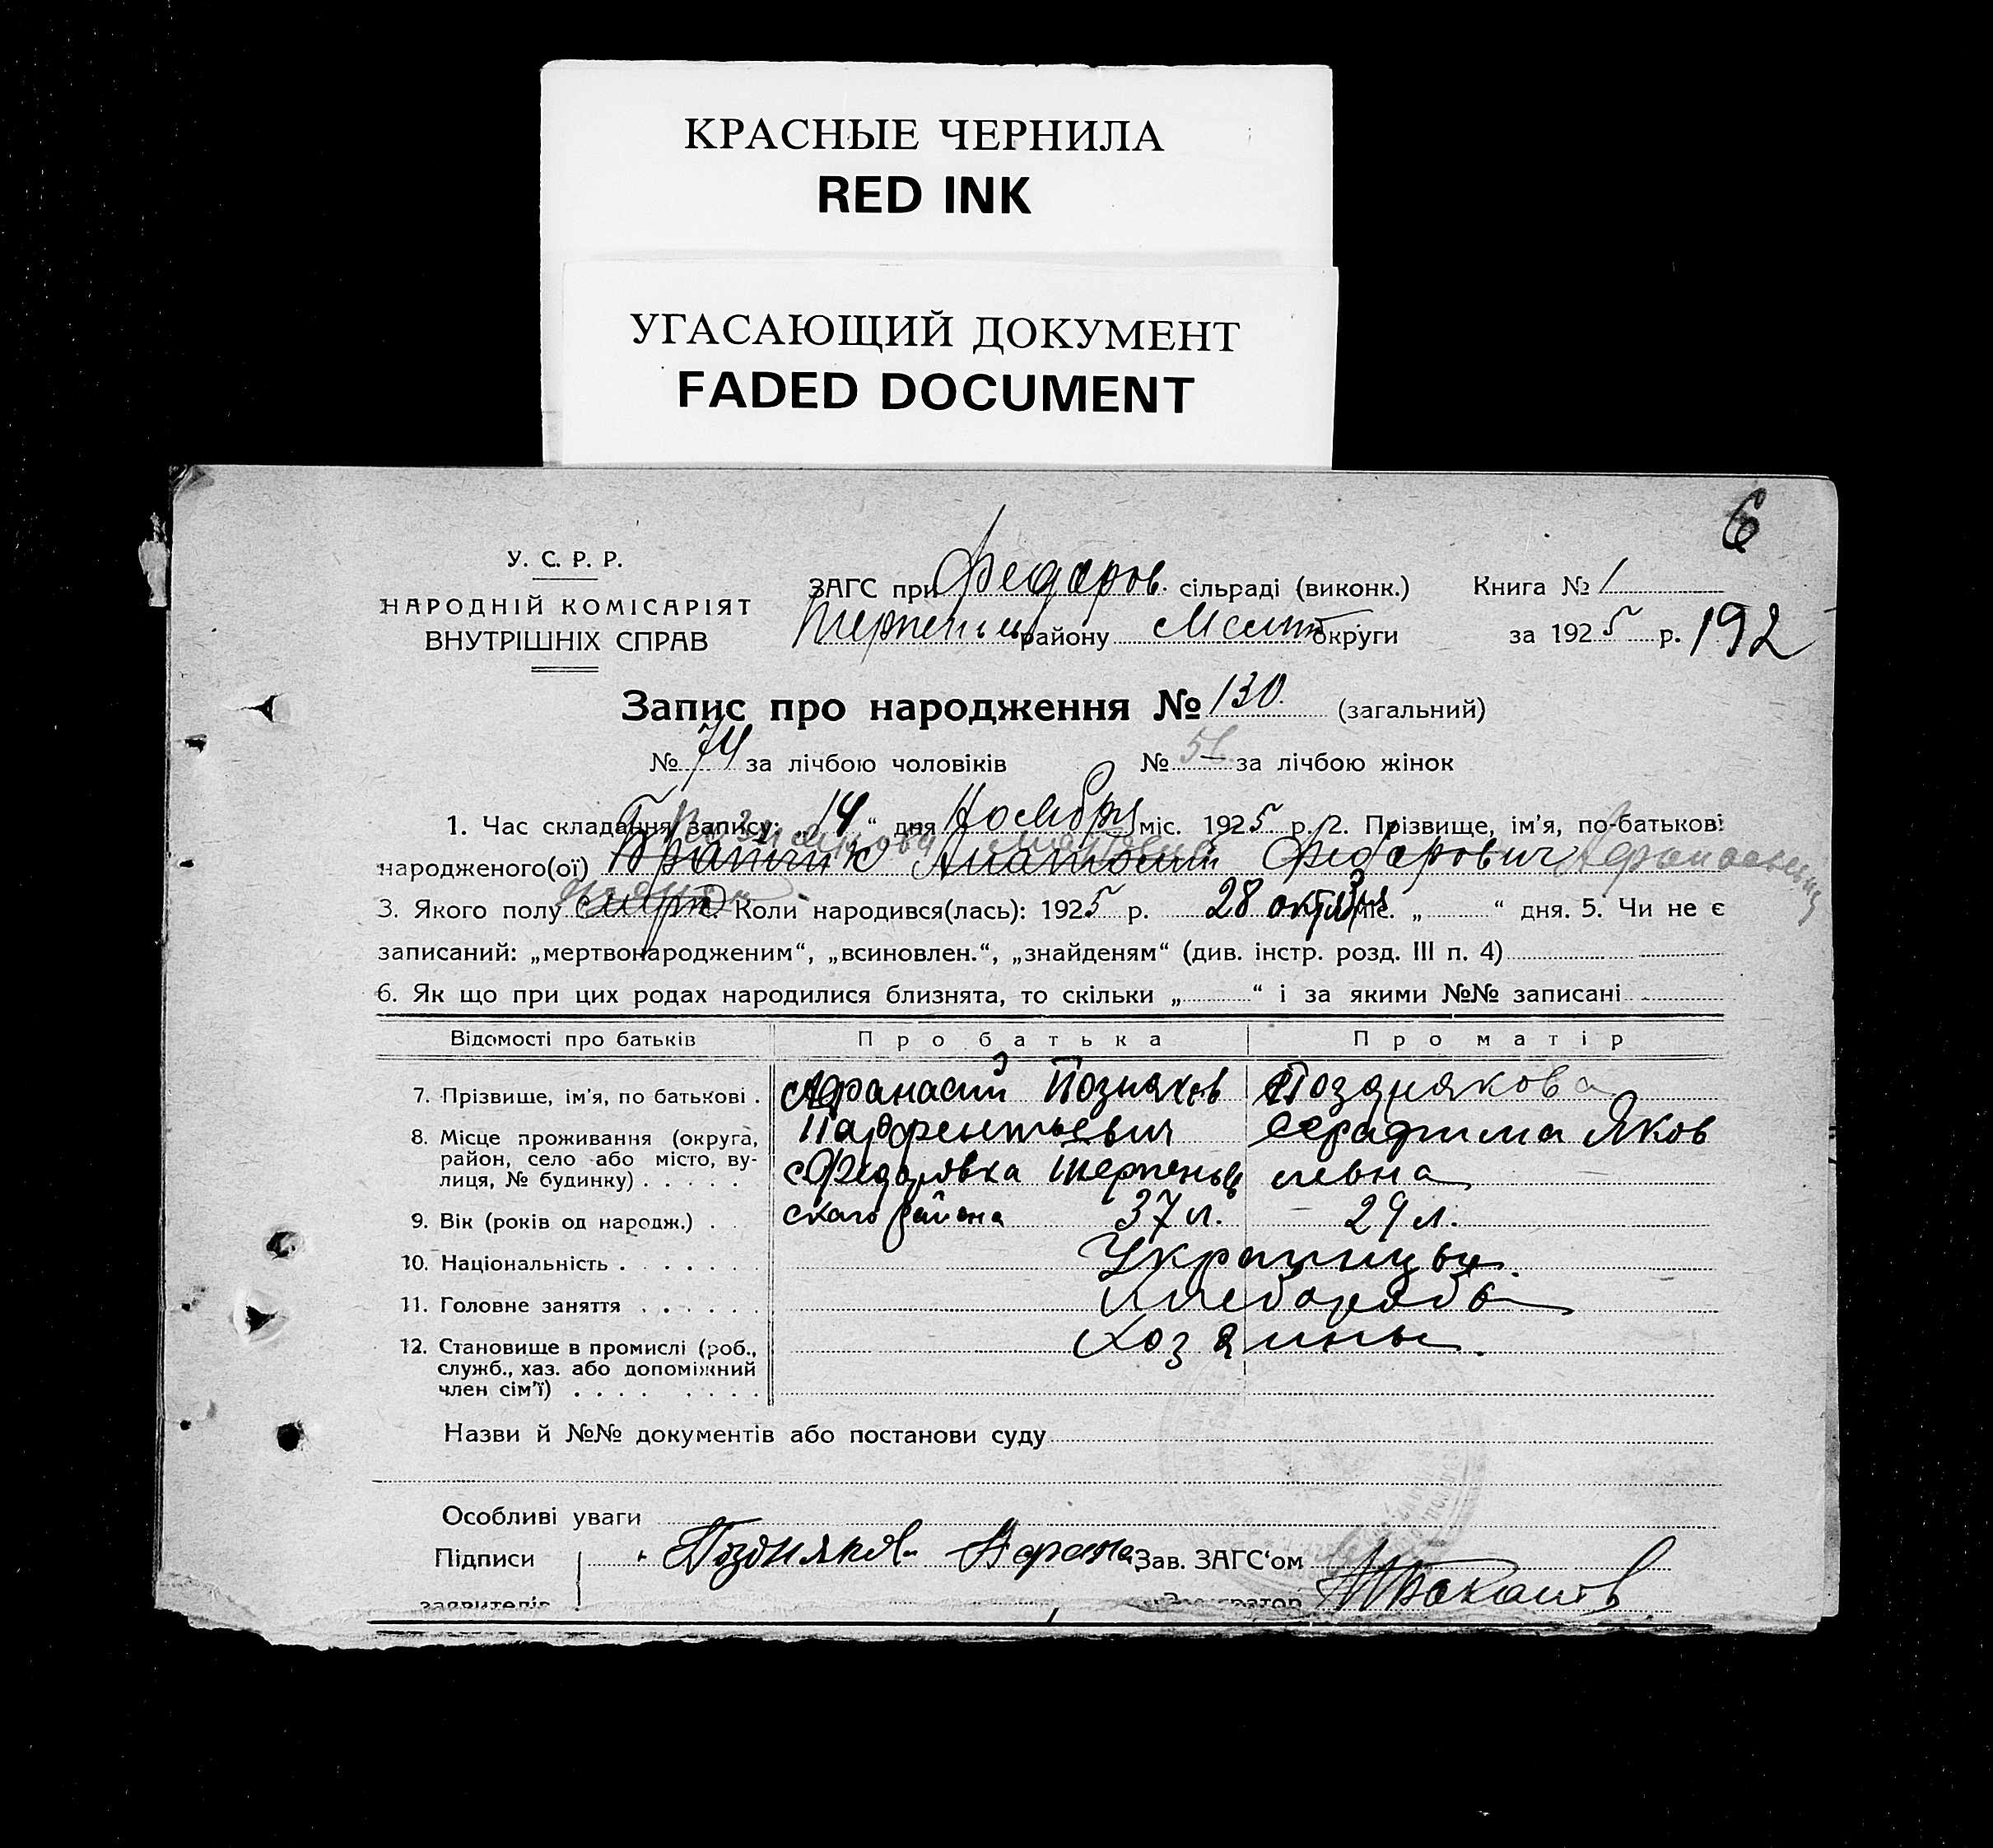 КРАСНЫЕ ЧЕРНИЛА
RED INK
УГАСАЮЩИЙ ДОКУМЕНТ
FADED DOCUMENT
6
У. С. Р. Р.
НАРОДНІЙ КОМІСАРІЯТ
ВНУТРІШНІХ СПРАВ
ЗАГС при Федоров. сільраді (виконк.) Книга № 1
району Мелит округи за 1925 р. 192
Запис про народження № 130 (загальний)
№ 74 за лічбою чоловіків № 56 за лічбою жінок
1. Час складання запису: 14 “ дня Ноября міс. 1925 р. 2. Прізвище, ім'я, по-батькові
народженого(ої) Братчик Анатолий Федорович
3. Якого полу 4. Коли народився(лась): 1925 р. 28 октября міс. „ “ дня. 5. Чи не є
записаний: „мертвонародженим“, „всиновлен.“, „знайденям“ (див. інстр. розд. III п. 4)
6. Як що при цих родах народилися близнята, то скільки „ “ і за якими №№ записані
Відомості про батьків Про батька Про матір
7. Прізвише, ім'я, по батькові . Афанасий Позняков Позднякова
8. Місце проживання (округа, район, село або місто, вулиця, № будинку) Парфентьевич Серафима Яков
с Федоровка Терпеньев левна
9. Вік (років од народж.) . ского района 37 л. 29 л.
10. Національність Украинцы.
11. Головне заняття Хлебороб
12. Становище в промислі (роб., Хозяины.
служб., хаз. або допоміжний
член сім'ї)
Назви й №№ документів або постанови суду
Особливі уваги
Підписи Поздняков Зав. ЗАГС'ом
заявителів